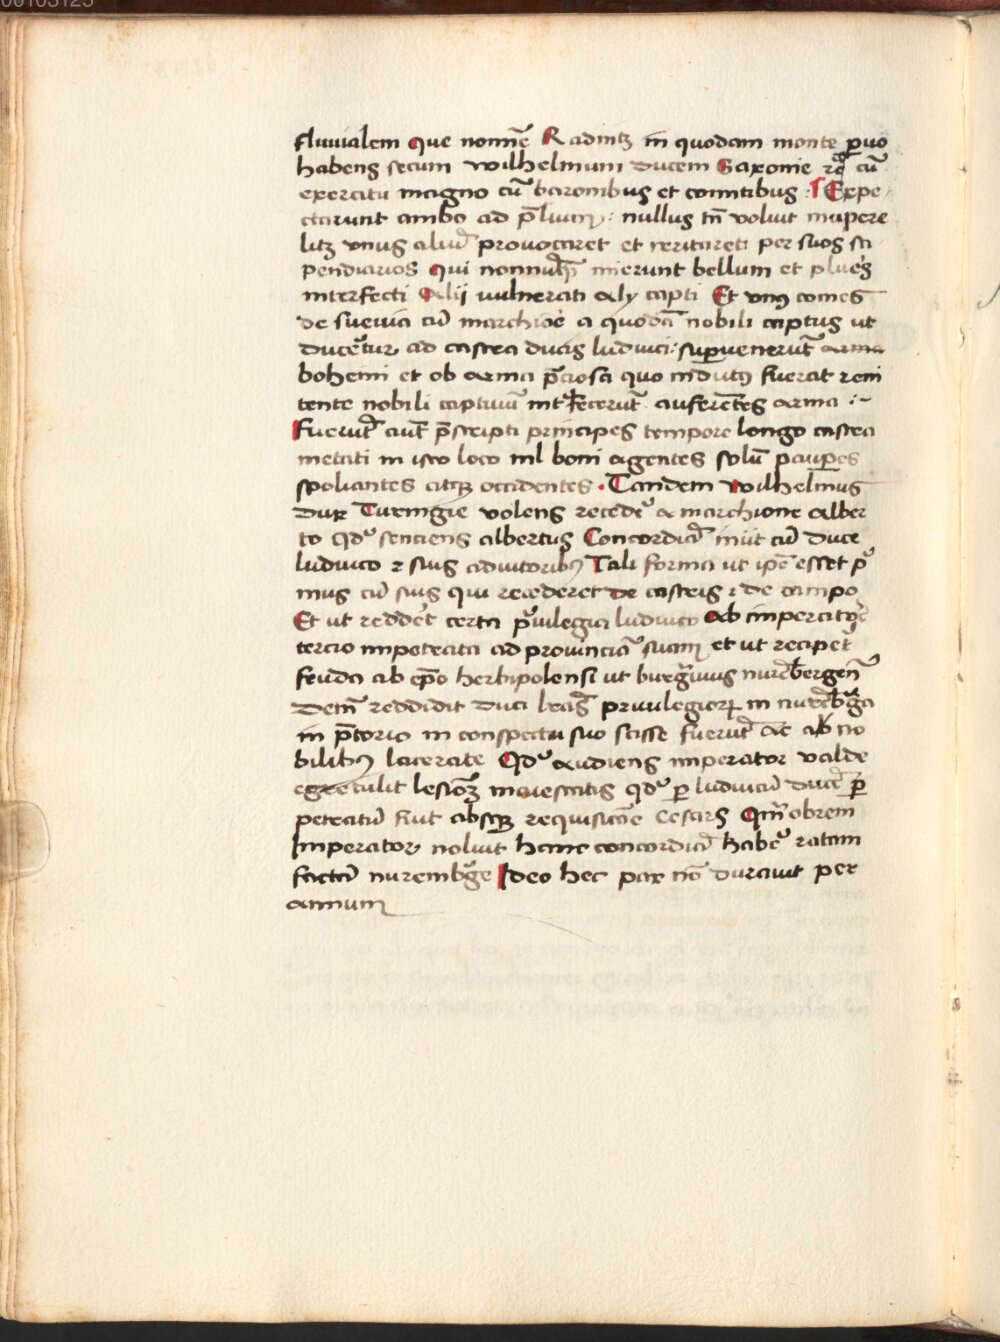 00103125
fluuialem Que nomīe Radintz in quodam monte ꝑuo
habens secum wilhelmum ducem Saxonie cū
exercitu magno cū baronibus et comitibus : Expe
ctarunt ambo ad p̄lium : nullus tn̄ voluit inupere
litꝫ vnus aliū prouocaret et irritaret per suos sti
pendiarios Qui nonnūqꝫ inierunt bellum et plueˢ
interfecti Alij vulnerati aly capti Et vnꝰ comes
de sueuia cū marchiōe a quodā nobili captus ut
ducet̉ur ad castra ducis ludwici : suꝑuenerūt
bohemi et ob arma p̄ciosa quo indutꝰ fuerat reni
tente nobili captiuū int̉fecerūt auferētes arma :~
Fuerūt aut̄ p̄scripti principes tempore longo castra
metati in isto loco nil boni agentes solū pauꝑes
spoliantes atqꝫ occidentes . Tandem wilhelmus
dux Turingie volens recede᷒ a marchione alber
to Qd᷒ senciens albertus Concordiā iniit cū duce
ludwico ⁊ suis adiutoribꝰ Tali forma ut ip̄e esset p᷒
mus cū suis qui recederet de castris ⁊ de campo
Et ut redderet certa p᷒uilegia ludwico Ab imperatore
tercio impetrata ad prouinciā suam et ut recipet̉
feuda ab ep̄o herbipolensi ut burg̉uius nurēbergen̄
Demū reddidit duci lrās priuilegioꝝ in nurēb̉ga
in p̄torio in conspectu suo scisse fuerūt Ac ab no
bilibꝰ lacerate Qd᷒ audiens imperator valde
egre tulit lesionē maiestatis qd᷒ ꝑ ludwicū ducē
petratū fuit absqꝫ requisicōne Cesaris Qm̄obrem
Imperator noluit hanc concordiā habe᷒ ratam
factā nuremb̉ge Ideo hec pax nō durauit per
annum